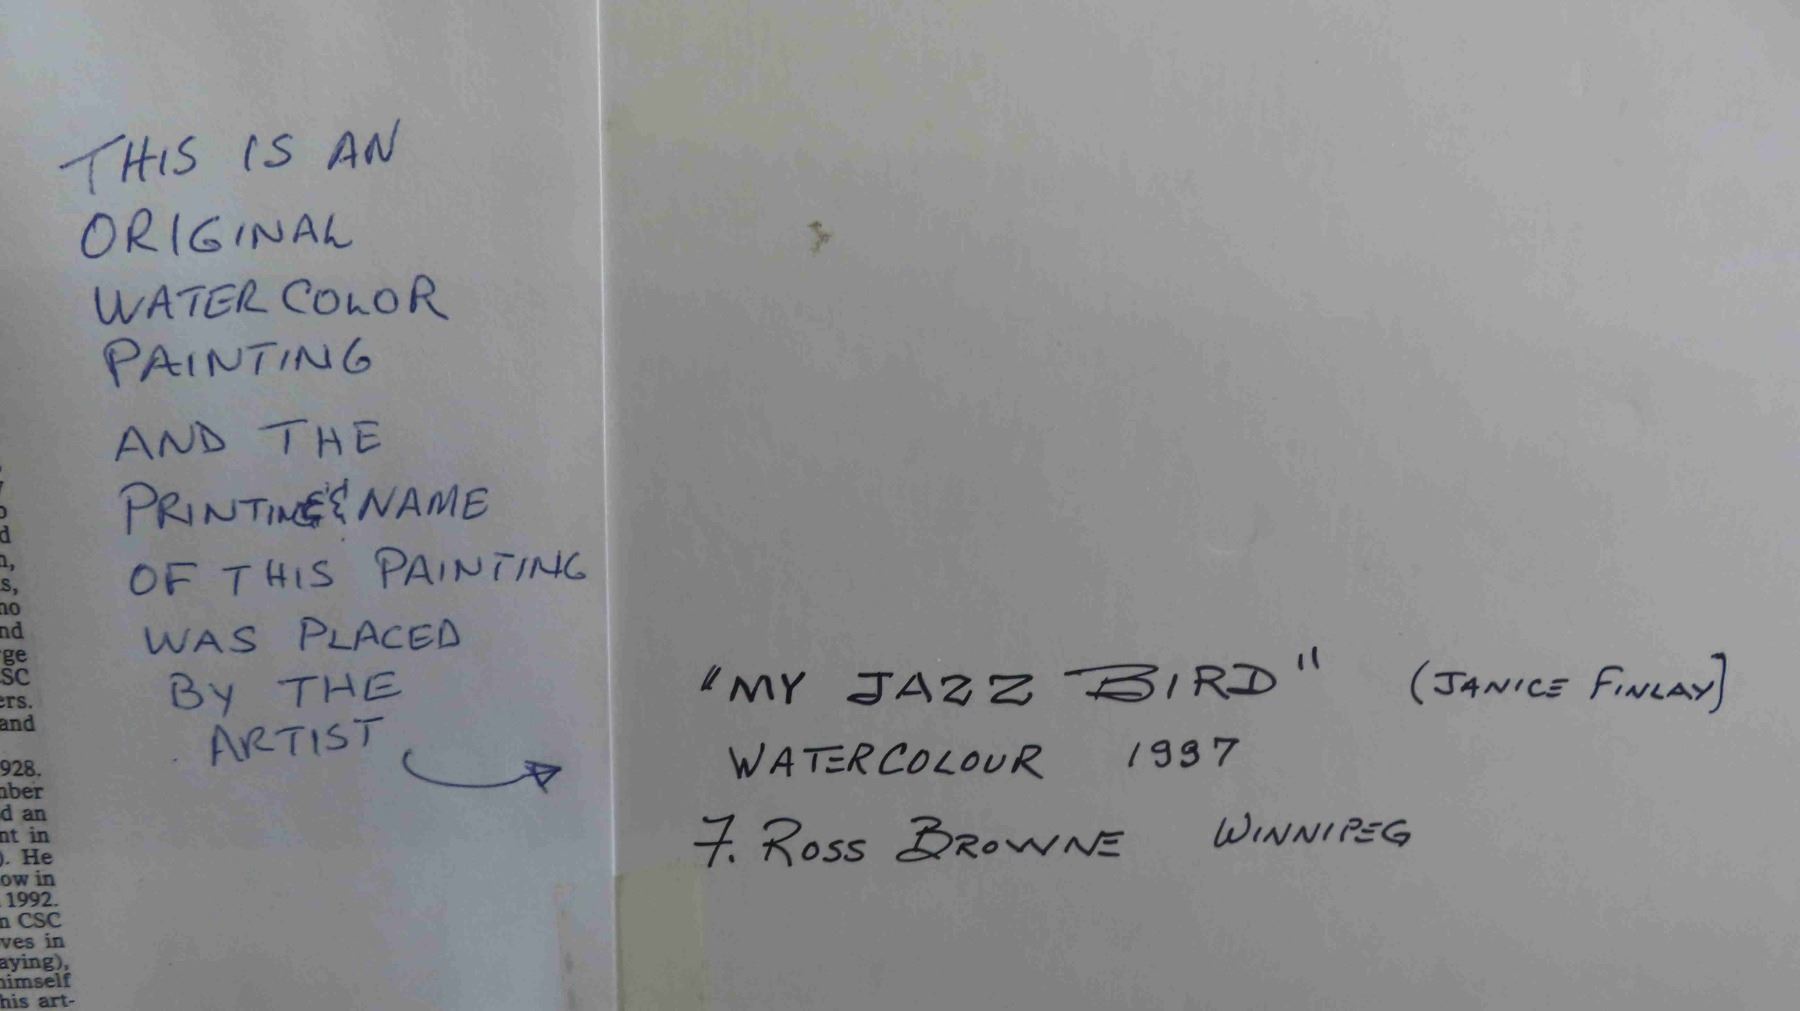 THIS IS AN
ORIGINAL
WATERCOLOR
PAINTING
AND THE
PRINTING & NAME
OF THIS PAINTING
WAS PLACED
BY THE
ARTIST
"MY JAZZ BIRD" (JANICE FINLAY)
WATERCOLOUR 1997
F. ROSS BROWNE WINNIPEG
d
n,
s,
no
nd
rge
SC
ers.
and
928.
nber
d an
nt in
). He
ow in
1992.
n CSC
ves in
aying),
himself
his art-